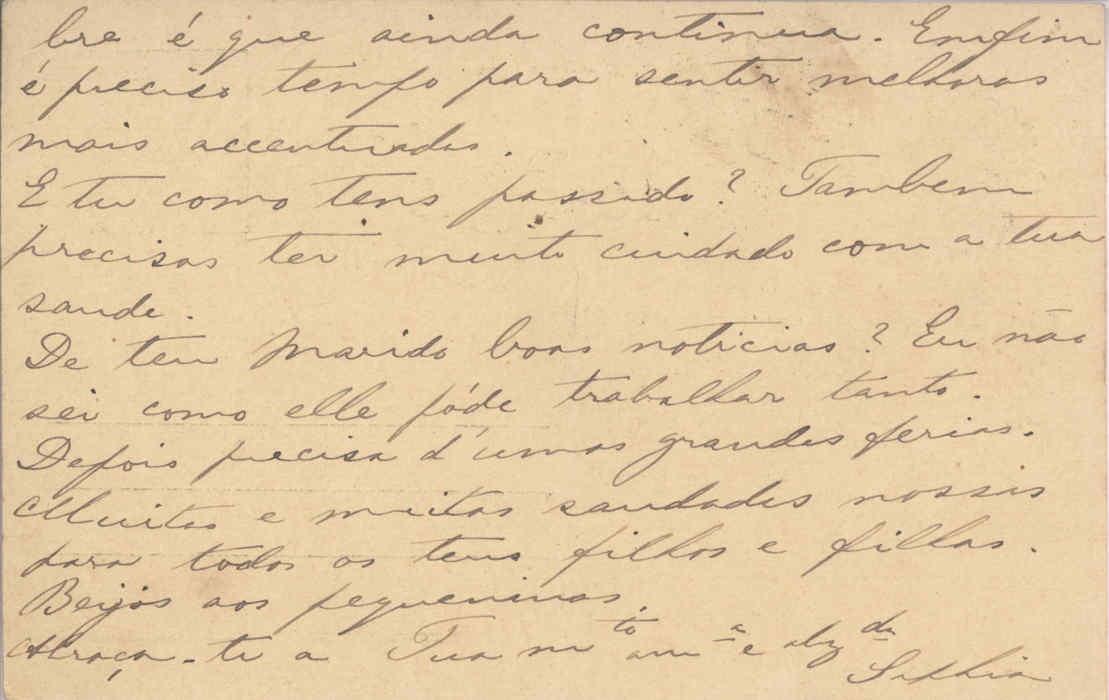 bre é que ainda continua. Emfim
é preciso tempo para sentir melhoras
mais accentuadas.
E tu como tens passado? Tambem
precisas ter muito cuidado com a tua
saude.
De teu Marido boas noticias? Eu não
sei como elle póde trabalhar tanto.
Depois precisa d'umas grandes ferias.
Muitas e muitas saudades nossas
para todos os teus filhos e filhas.
Beijos aos pequeninos.
Abraça-te a Tua mto amª e obgda
Sophia